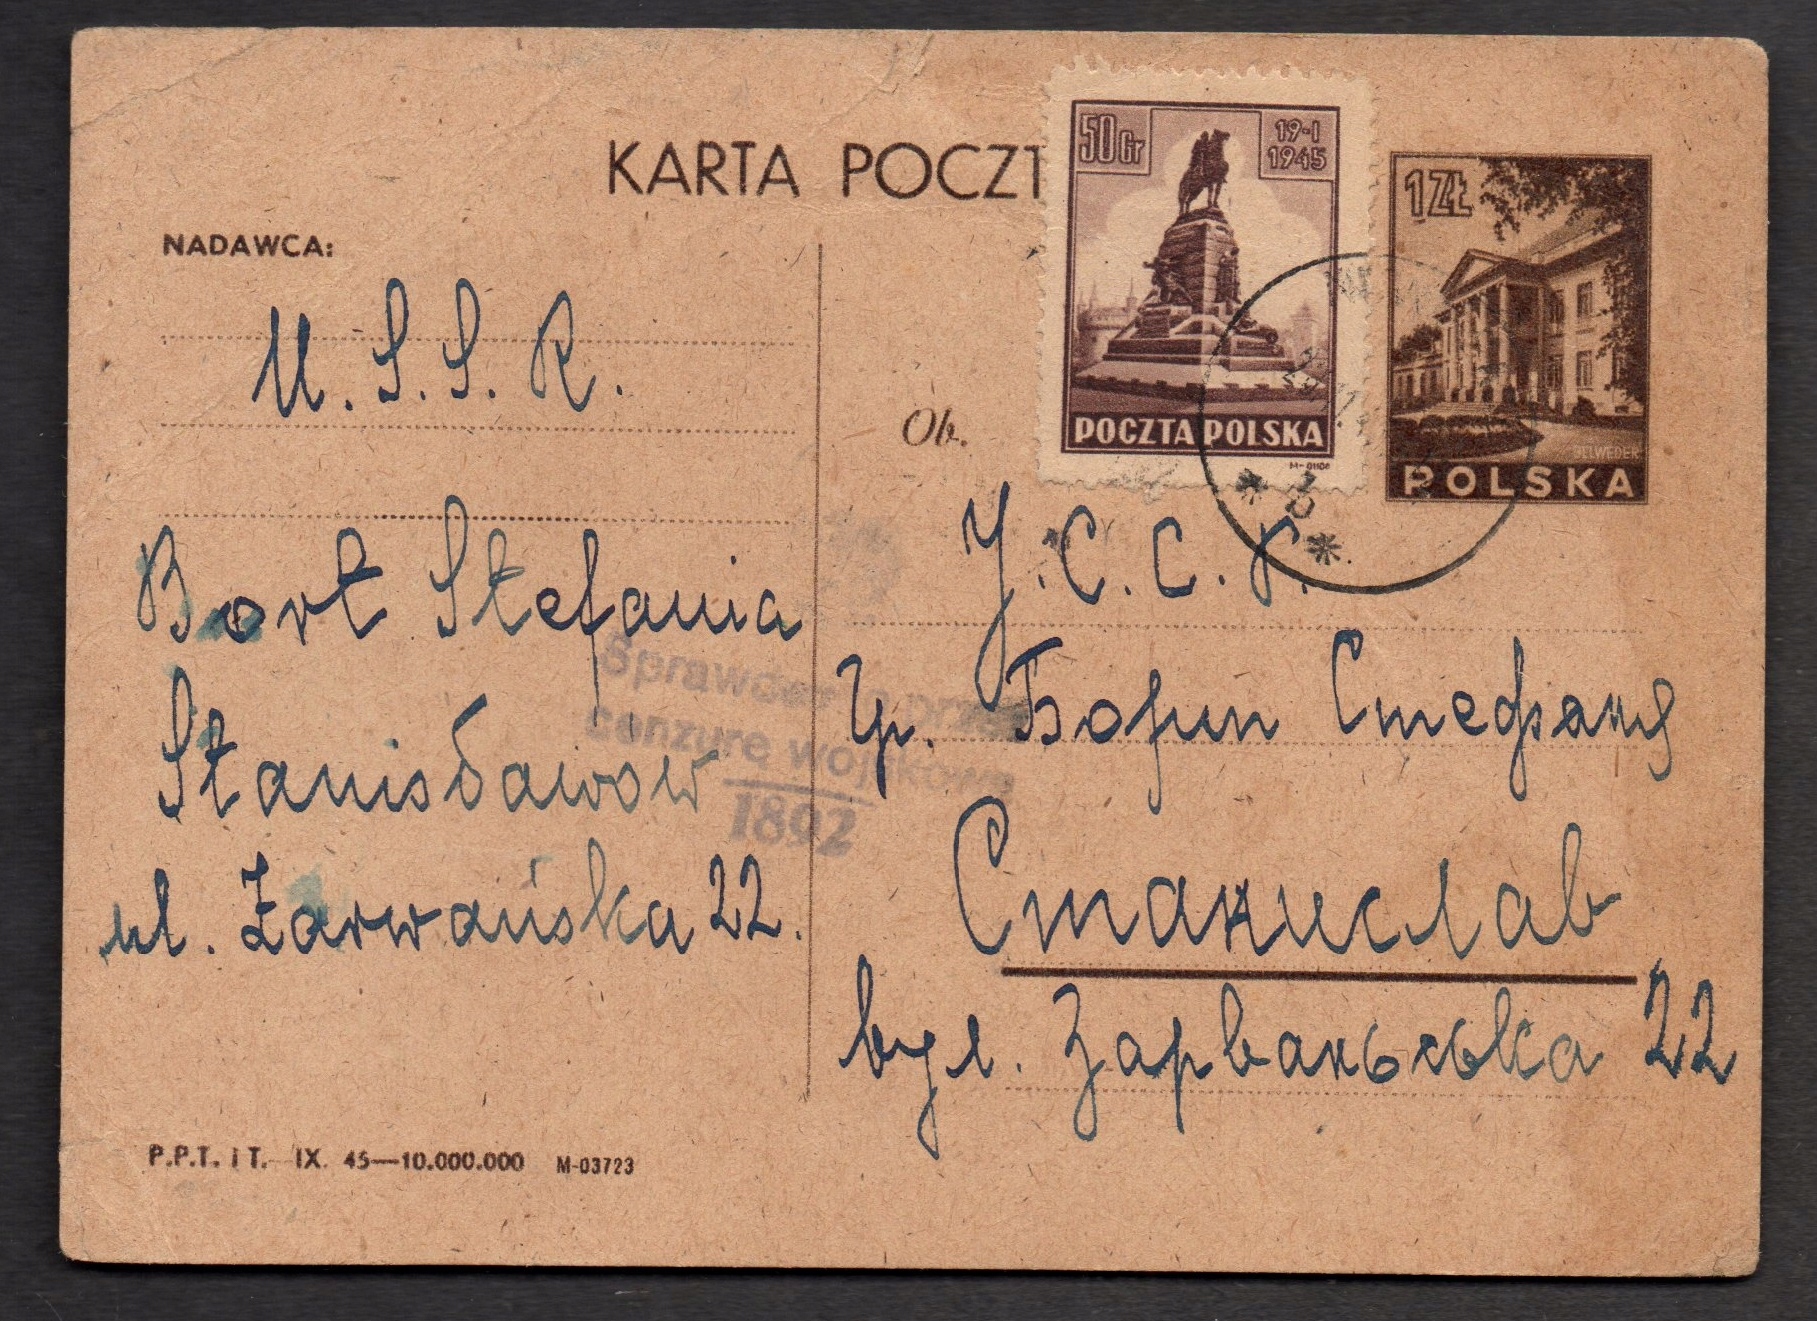 KARTA POCZT
50Gr
19-I
1945
POCZTA POLSKA
M-01106
1ZŁ
BELWEDER
POLSKA
NADAWCA:
U.S.S.R.
Bort Stefania
Stanisławów
ul. Zarwańska 22.
Ob.
У.С.С.Р.
гр. Борт Стефанія
Станислав
вул. Зарваньська 22
Sprawdzono przez
cenzurę wojskową
1892
P.P.T. i T. IX. 45—10.000.000 M-03723